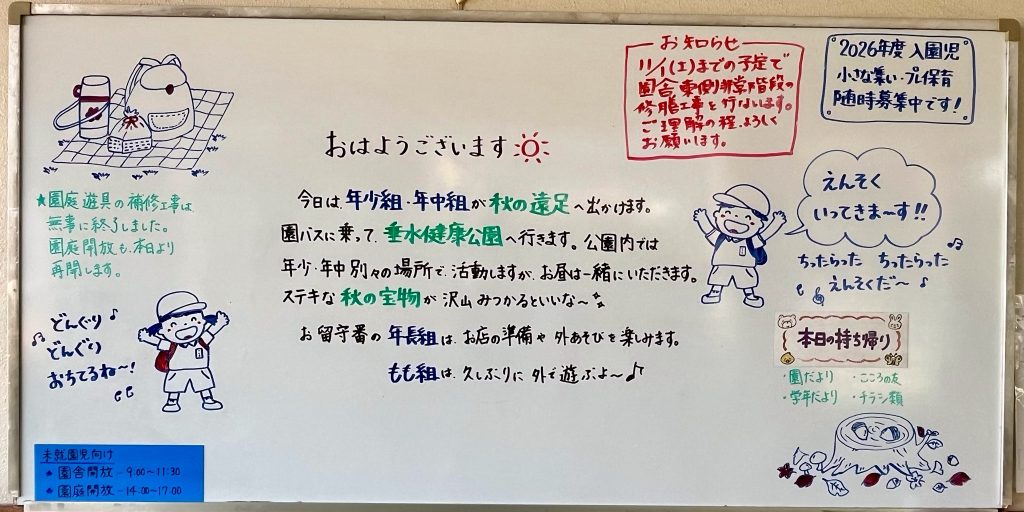 お知らせ
11/1(土)までの予定で
園舎東側非常階段の
修繕工事を行ないます。
ご理解の程、よろしく
お願います。
2026年度 入園児
小さな集い・プレ保育
随時募集中です!
おはようございます
★園庭遊具の補修工事は、
無事に終了しました。
園庭開放も、本日より
再開します。
今日は、年少組・年中組が秋の遠足へ出かけます。
園バスに乗って、垂水健康公園へ行きます。公園内では
年少・年中別々の場所で、活動しますが、お昼は一緒にいただきます。
ステキな秋の宝物が沢山みつかるといいな〜
お留守番の年長組は、お店の準備や外あそびを楽しみます。
もも組は、久しぶりに外で遊ぶよ〜♪
えんそく
いってきま〜す!!
ちったらった ちったらった
えんそくだ〜♪
どんぐり♪
どんぐり
おちてるね〜!
本日の持ち帰り
・園だより ・こころの友
・学年だより ・チラシ類
未就園児向け
★園舎開放-9:00〜11:30
★園庭開放-14:00〜17:00